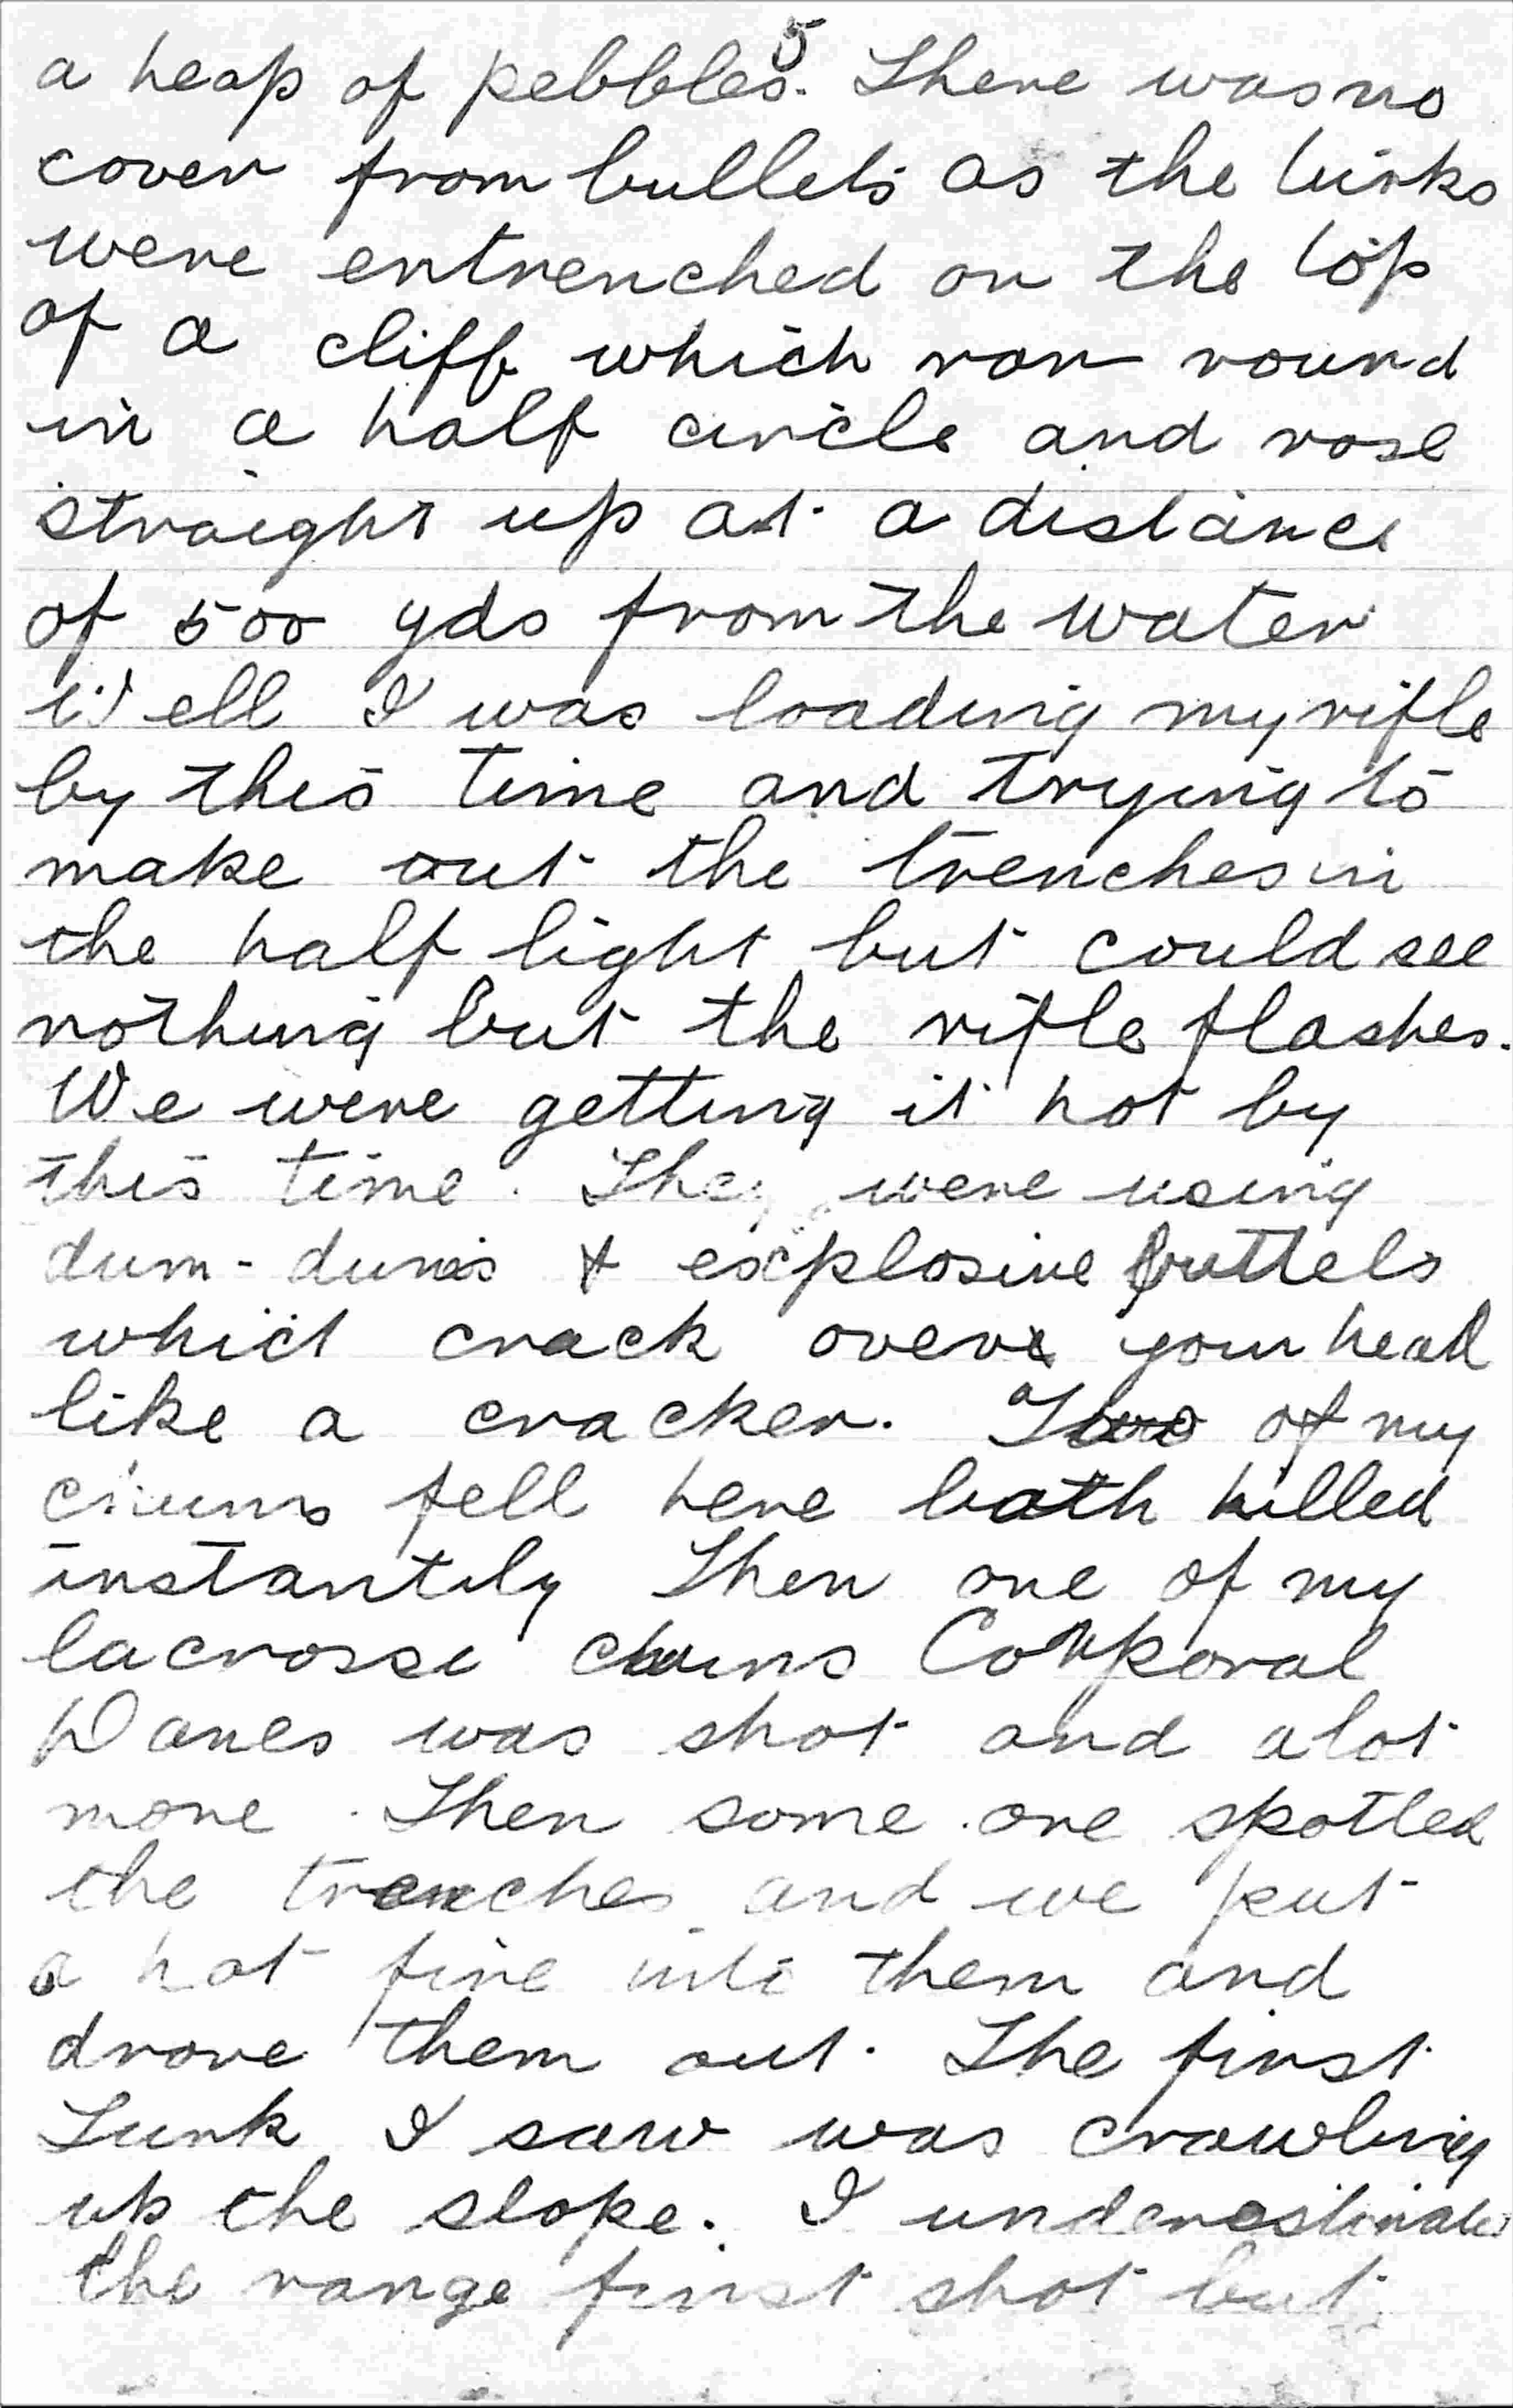 5
a heap of pebbles. There was no
cover from bullets as the turks
were entrenched on the top
of a cliff which ran round
in a half circle and rose
straight up at a distance
of 500 yds from the water
Well I was loading my rifle
by this time and trying to
make out the trenches in
the half light but could see
nothing but the rifle flashes.
We were getting it hot by
this time. They were using
dum-dums & explosive buttels
which crack over your head
like a cracker. Two of my
chums fell here both killed
instantily Then one of my
lacrosse chums Corporal
was shot and alot
more. Then some one spotted
the trenches and we put
a hot fire into them and
drove them out. The first
Turk I saw was crawling
up the slope. I underestimated
the range first shot but